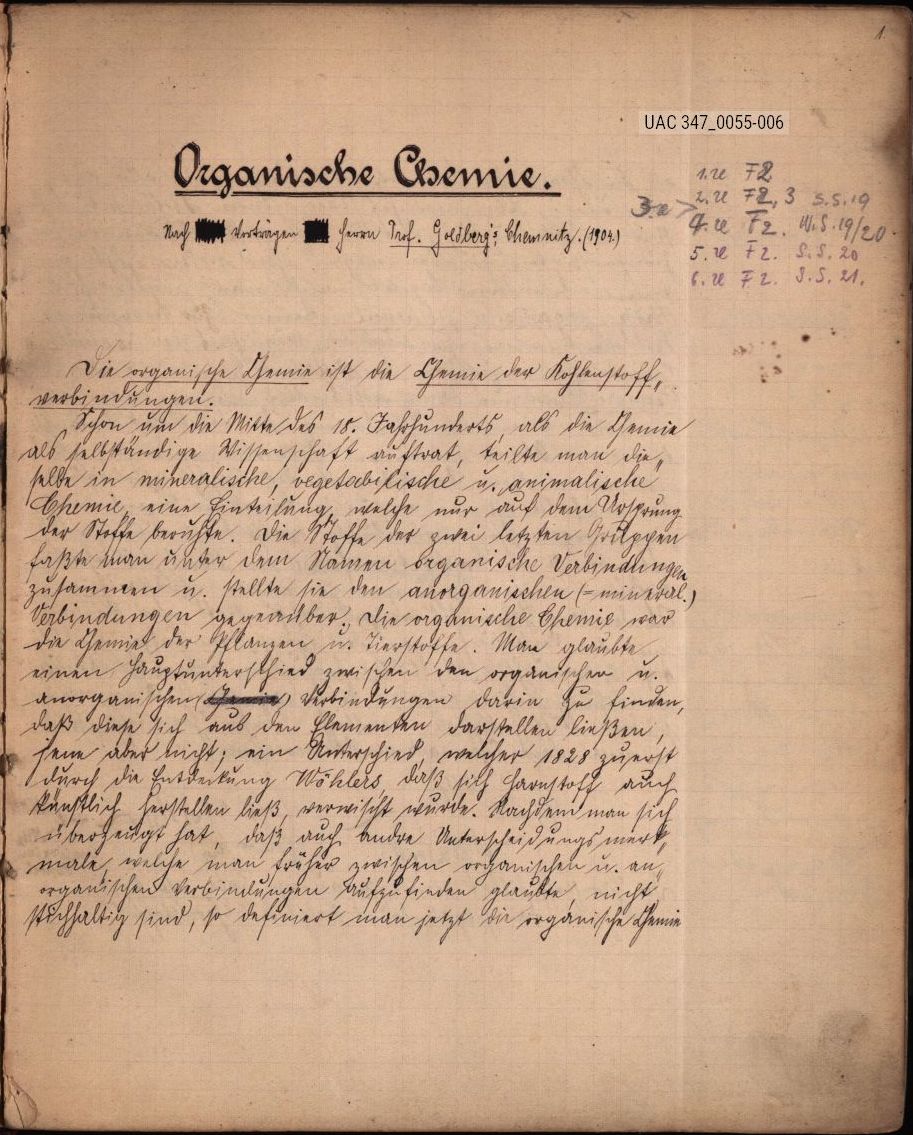 1
UAC 347_0055-006
Organische Chemie.
Nach Vorträgen Herrn Prof. Goldberg's Chemnitz. (1904.)
1. F2
2. F2, 3 S.S. 19
3a >
4. F2. W.S. 19/20.
5. F2. S.S. 20
6. F2. S.S. 21.
Die organische Chemie ist die Chemie der Kohlenstoff„
verbindungen.
Schon um die Mitte des 18. Jahrhunderts, als die Chemie
als selbständige Wissenschaft auftrat, teilte man die„
selbe in mineralische, vegetabilische u. animalische
Chemie, eine Einteilung, welche nur auf dem Ursprung
der Stoffe beruhte. Die Stoffe der zwei letzten Gruppen
faßte man unter dem Namen organische Verbindungen
zusammen u. stellte sie den anorganischen (= mineral.)
Verbindungen gegenüber. Die organische Chemie war
die Chemie der Pflanzen u. Tierstoffe. Man glaubte
einen Hauptunterschied zwischen den organischen u.
anorganischen Verbindungen darin zu finden,
daß diese sich aus den Elementen darstellen ließen,
jene aber nicht; ein Unterschied, welcher 1828 zuerst
durch die Entdeckung Wöhlers, daß sich Harnstoff auch
künstlich herstellen ließ verwischt wurde. Nachdem man sich
überzeugt hat, daß auch andre Unterscheidungsmerk„
male, welche man früher zwischen organischen u. an„
organischen Verbindungen aufzufinden glaubte, nicht
stichhaltig sind, so definiert man jetzt die organische Chemie